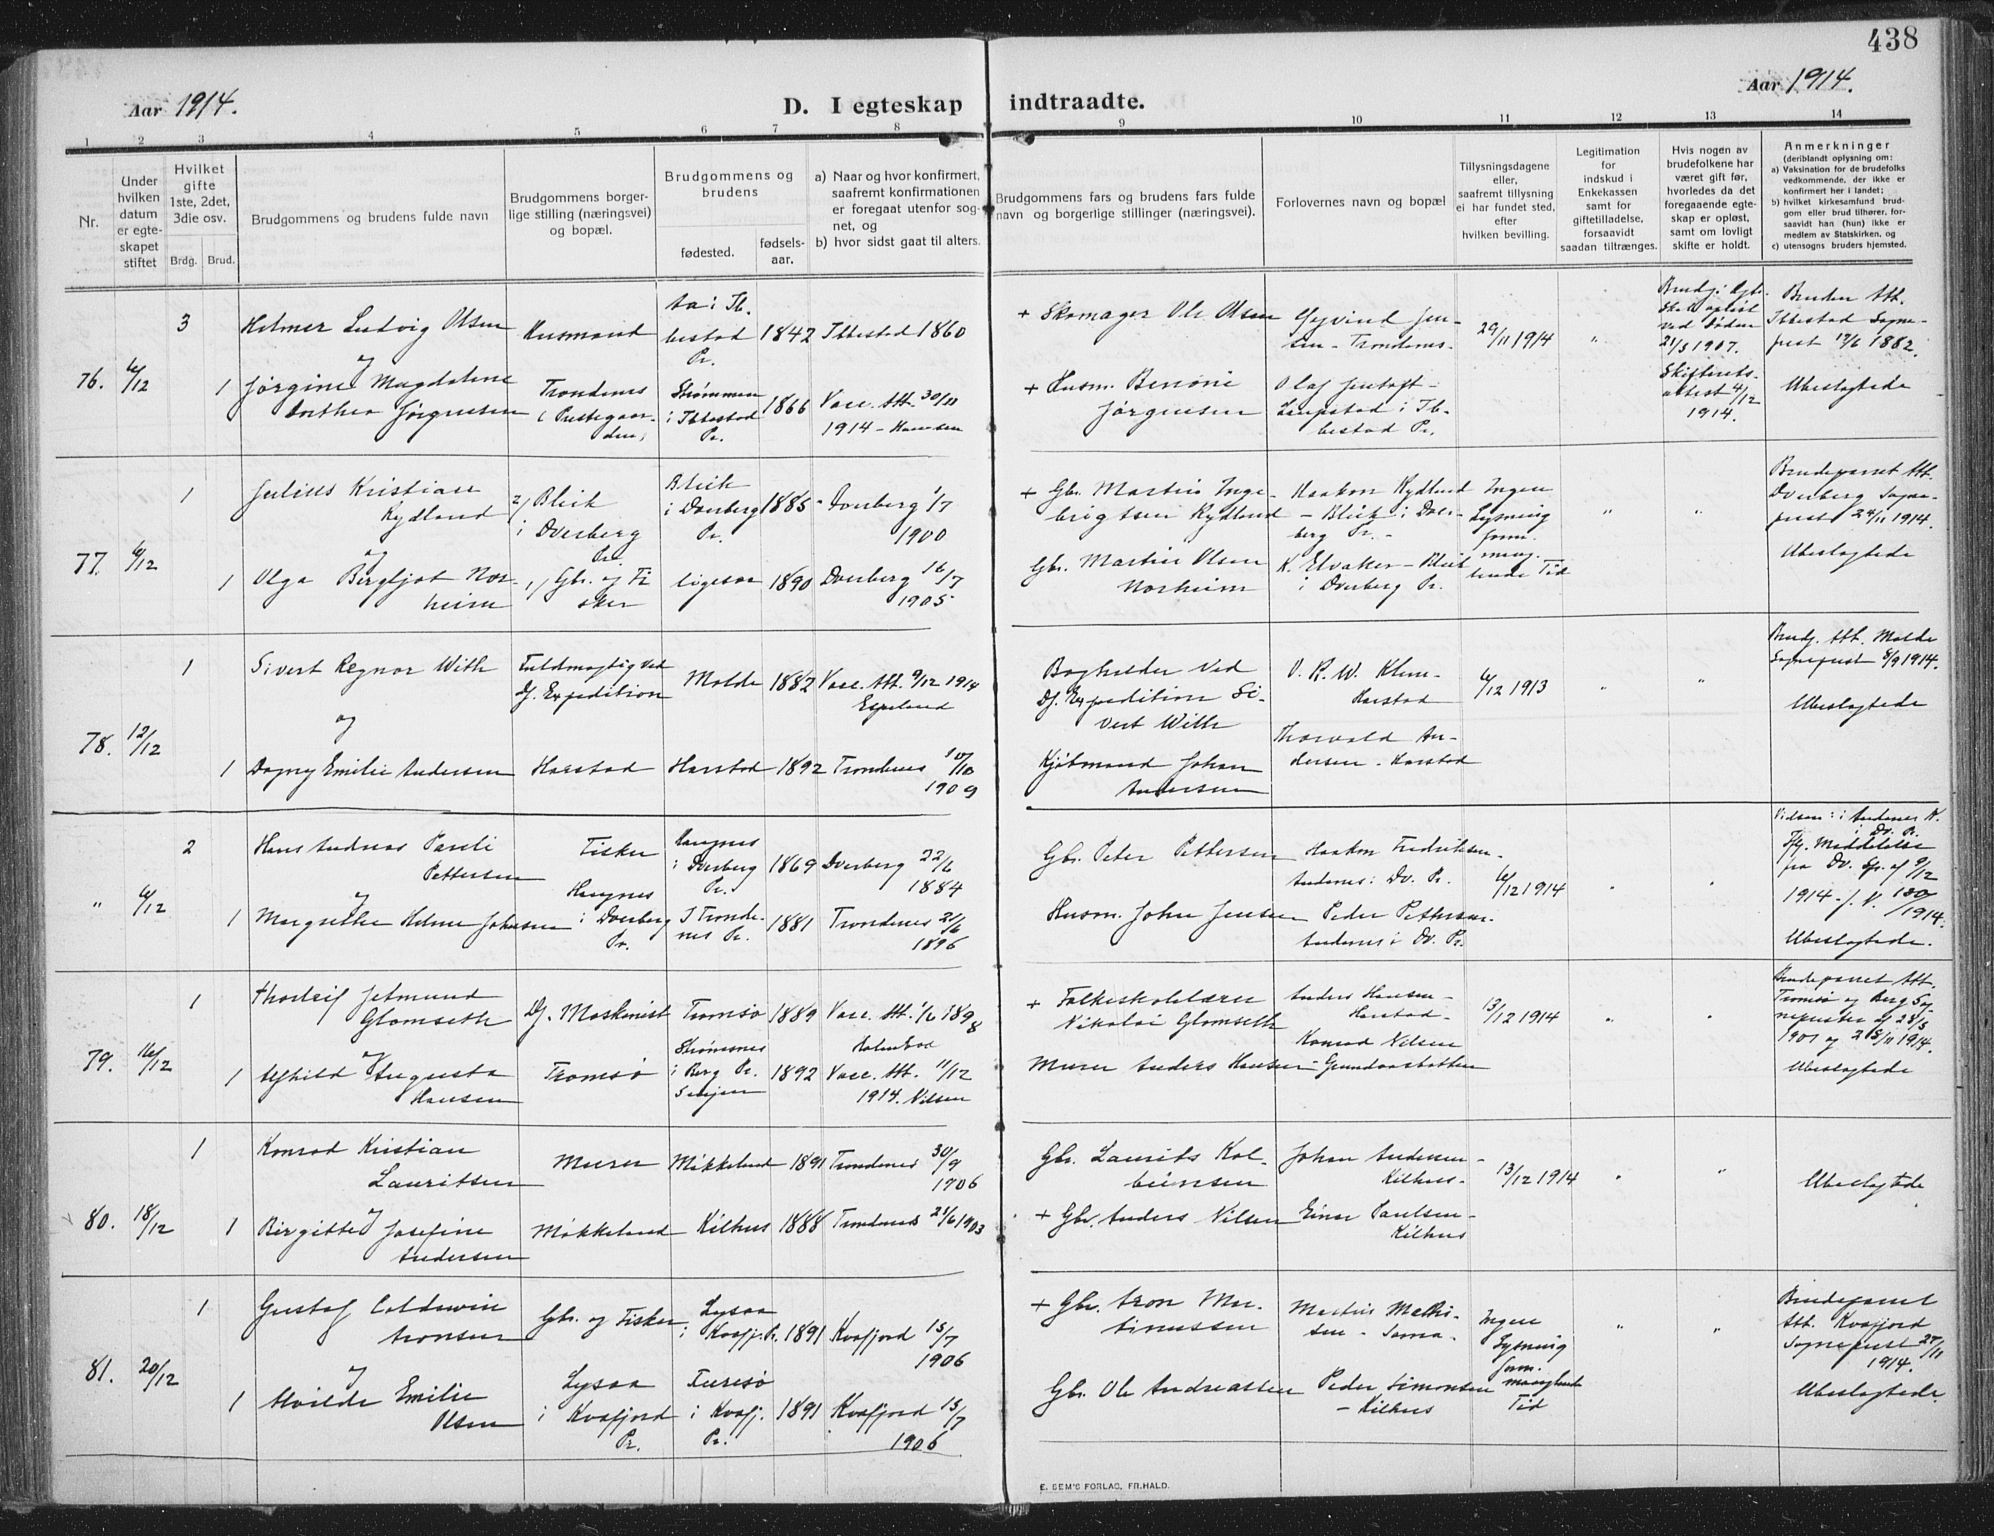 438
Aar 1914.
D. I egteskap indtraadte.
Aar 1914.
1 2 3 4 5 6 7 8 9 10 11 12 13 14
Nr.
Under hvilken datum er egteskapet stiftet
Hvilket gifte 1ste, 2det, 3die osv.
Brdg. Brud.
Brudgommens og brudens fulde navn
Brudgommens borgerlige stilling (næringsvei) og bopæl.
Brudgommens og brudens
fødested.
fødselsaar.
a) Naar og hvor konfirmert, saafremt konfirmationen er foregaat utenfor sognet, og
b) hvor sidst gaat til alters.
Brudgommens fars og brudens fars fulde navn og borgerlige stillinger (næringsvei).
Forlovernes navn og bopæl
Tillysningsdagene eller, saafremt tillysning ei har fundet sted, efter hvilken bevilling.
Legitimation for indskud i Enkekassen samt for giftetilladelse, forsaavidt saadan tiltrænges.
Hvis nogen av brudefolkene har været gift før, hvorledes da det foregaaende egteskap er opløst, samt om lovligt skifte er holdt.
Anmerkninger
(deriblandt oplysning om:
a) Vaksination for de brudefolks vedkommende, der ikke er konfirmert her i landet;
b) hvilket kirkesamfund brudgom eller brud tilhører, forsaavidt han (hun) ikke er medlem av Statskirken, og
c) utensogns bruders hjemsted.
76. 6/12
3 Hilmar Ludvig Olsen
Husmand
1842 Ibbestad 1860
+ Skomager Ole Olsen
Øyvind Jensen - Trondenes.
29/11 1914
og
1 Jørgine Magdalene Dorthea Jørgensen
Trondenes (Prestegaarden)
Strømmen i Ibbestad Pr.
1866
Vacc. Att. 30/11 1914 - Hansen
+ Husm. Benoni Jørgensen
Olaf Jentoft - Laupstad i Ibbestad Pr.
Skifterets-attest 4/12 1914.
Ubeslægtede
77. 6/12
1 Julius Kristian Rydland
2/ Bleik i Dverberg Pr.
Bleik i Dverberg Pr.
1885 Dverberg 1/7 1900
+ Gbr. Martin Ingebrigtsen Rydland
Haakon Rydland - Bleik i Dverberg Pr.
Ingen Lysning
Brudeparret Att. Dverberg Sogneprest 24/11 1914.
og
1 Olga Bergljot Norheim
1/ Gbr. og Fisker
ligesaa 1890 Dverberg 16/7 1905
Gbr. Martin Olsen Norheim
K. Elvaker - Bleik i Dverberg Pr.
Ubeslægtede
78. 12/12
1 Sivert Regnor With
Fuldmægtig ved Dj. Expedition
Molde 1882 Vacc. Att. 9/12 1914 Espeland
Bogholder ved Dj. Expedition Sivert With
Harstad
6/12 1913
Brudg. Att. Molde Sogneprest 8/9 1914.
Ubeslægtede
og
1 Dagny Emilie Andersen
Harstad Harstad 1892 Trondenes 10/10 1909
Kjøbmand Johan Andersen
Thorvald Andersen - Harstad
" 6/12
2 Hans Andreas Pauli Pettersen
Fisker
1869 Dverberg 22/6 1884
Gbr. Peter Pettersen
Haakon Fredriksen - Andenes i Dv. Pr.
6/12 1914
og
1 Margrethe Helene Johnsen
i Dverberg Pr.
I Trondenes Pr.
1881 Trondenes 21/6 1896
Husm. John Jensen
Peder Pettersen - Andenes i Dv. Pr.
1914 - J. N. 180/1914.
Ubeslægtede.
79. 16/12
1 Thorleif Jetmund Glomseth
Dj. Maskinist
Tromsø 1889 Vacc. Att. 1/6 1898
+ Folkeskolelærer Nikolai Glomseth
Anders Hansen - Harstad -
13/12 1914
Brudeparret Att. Tromsø og Berg Sognepræster af 28/5 1901 og 28/11 1914.
og
1 Alfhild Augusta Hansen
Tromsø
Strømsnes i Berg Pr. Senjen
1892 Vacc. Att. 11/12 1914. Nilsen
Murer Anders Hansen
Konrad Nilsen - Grundvasbotten
Ubeslægtede
80. 18/12
1 Konrad Kristian Lauritsen
Murer Møkkeland 1891 Trondenes 30/9 1906
Gbr. Laurits Kolbeinsen
Johan Andersen - Kilhus -
13/12 1914
Ubeslægtede
og
1 Birgitte Josefine Andersen
Møkkeland Kilhus 1888 Trondenes 21/6 1903
+ Gbr. Anders Nilsen
Einar Paulsen - Kilhus
81. 20/12
1 Gustaf Coldevin Aronsen
Gbr. og Fisker
Lysaa i Kvæfj. Pr.
1891 Kvæfjord 15/7 1906
+ Gbr. Aron Martinussen
Martin Mathisen - Sama -
Ingen Lysning
Brudeparret Att. Kvæfjord Sogneprest 27/11 1914.
og
1 Alvilde Emilie Olsen
Lysaa i Kvæfjord Pr.
i Kvæfj. Pr.
1891 Kvæfjord 15/7 1906
Gbr. Ole Andreassen
Peder Simonsen - Kilhus
Ubeslægtede.
E. SEM'S FORLAG, FR.HALD.